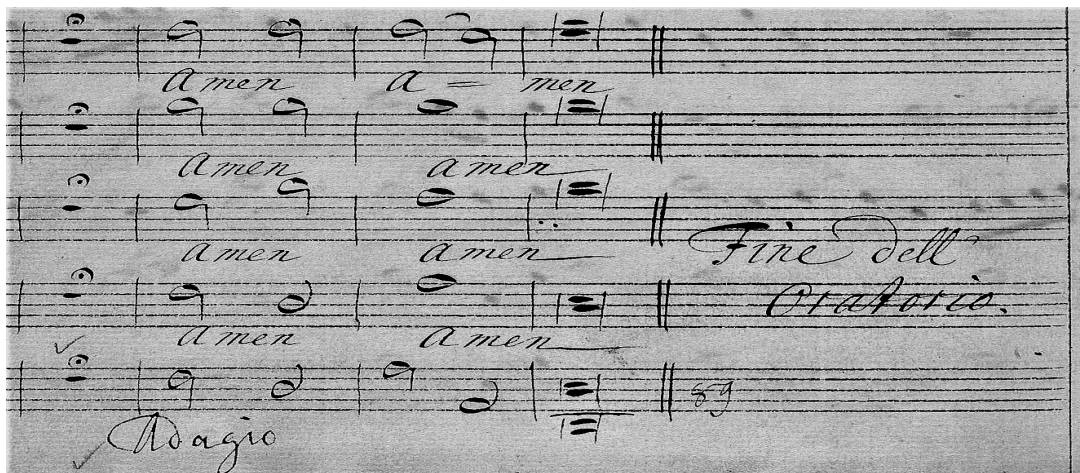 amen a = men
amen amen
amen amen
Fine dell
Oratorio.
amen amen
89
Adagio